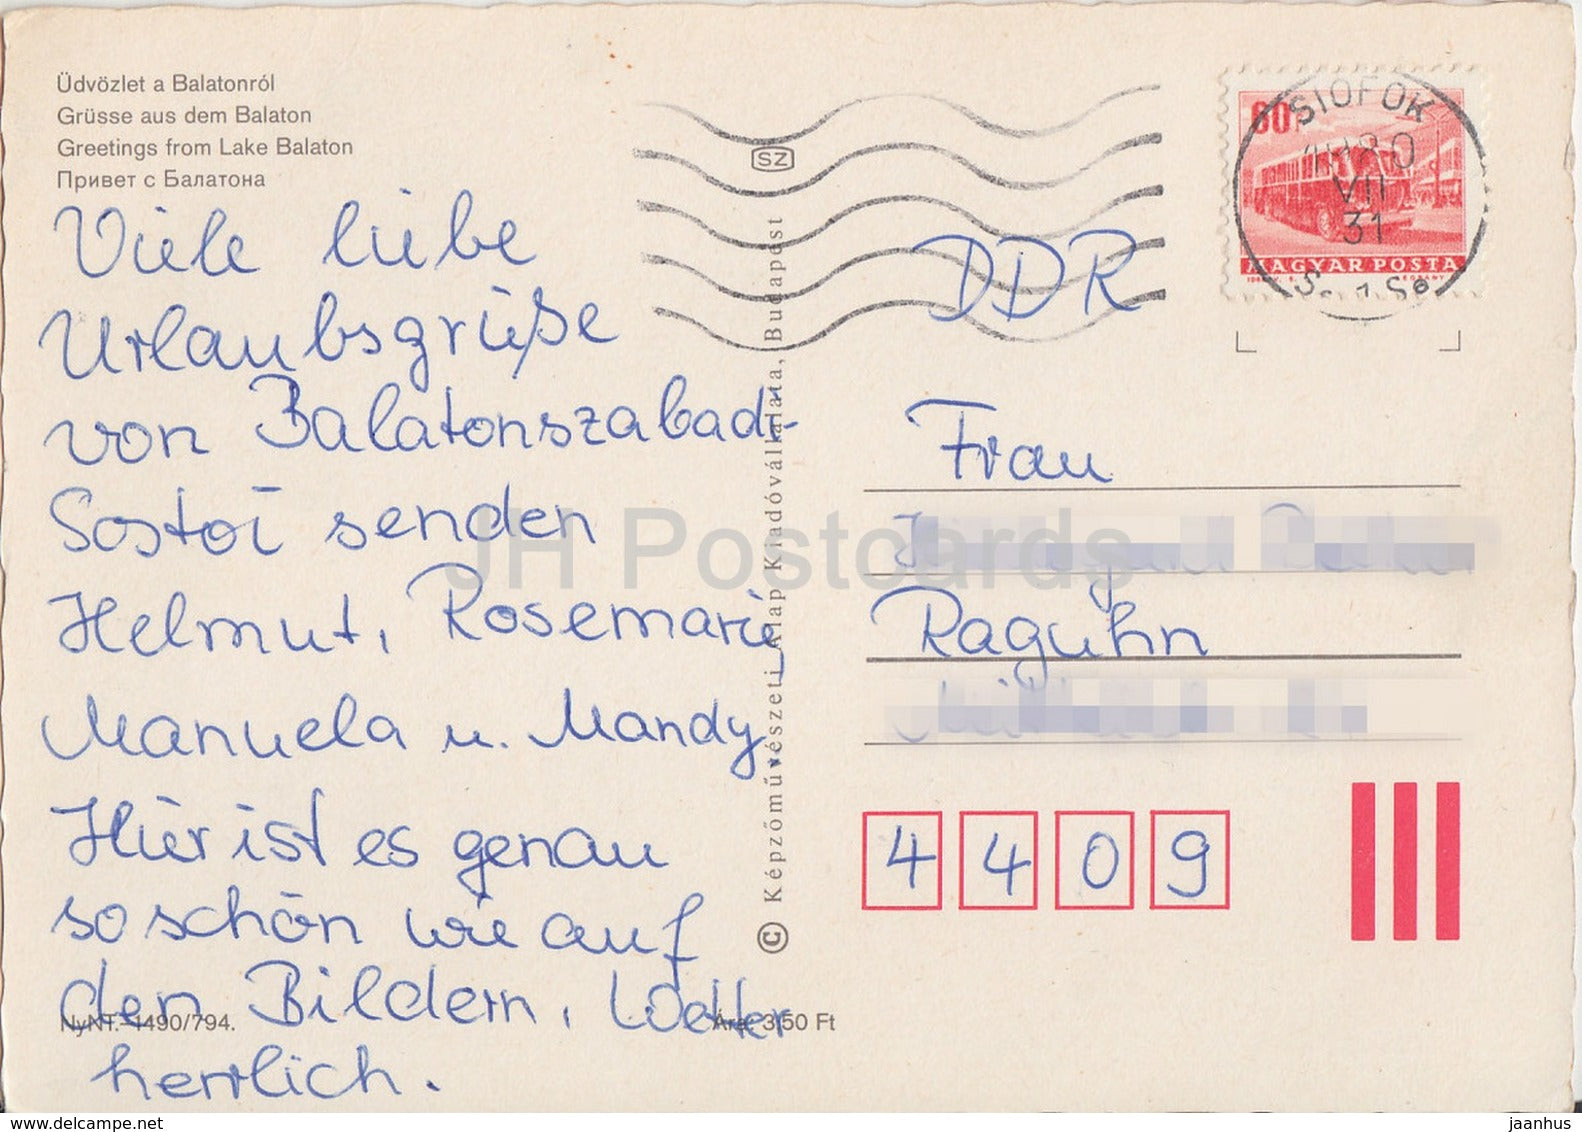 Üdvözlet a Balatonról
Grüsse aus dem Balaton
Greetings from Lake Balaton
Привет с Балатона
Viele liebe
Urlaubsgrüße
von Balatonszabadi-
Sostoi senden
Helmut, Rosemarie,
Manuela u. Mandy.
Hier ist es genau
so schön wie auf
den Bildern, Wetter
herrlich.
NyNT.-1490/794.
Ára: 3,50 Ft
SZ
© Képzőművészeti Alap Kiadóvállalata, Budapest
60f
MAGYAR POSTA
SIOFOK
VII
31
DDR
Frau
Raguhn
4409
JH Postcards
delcampe.net
jaanhus